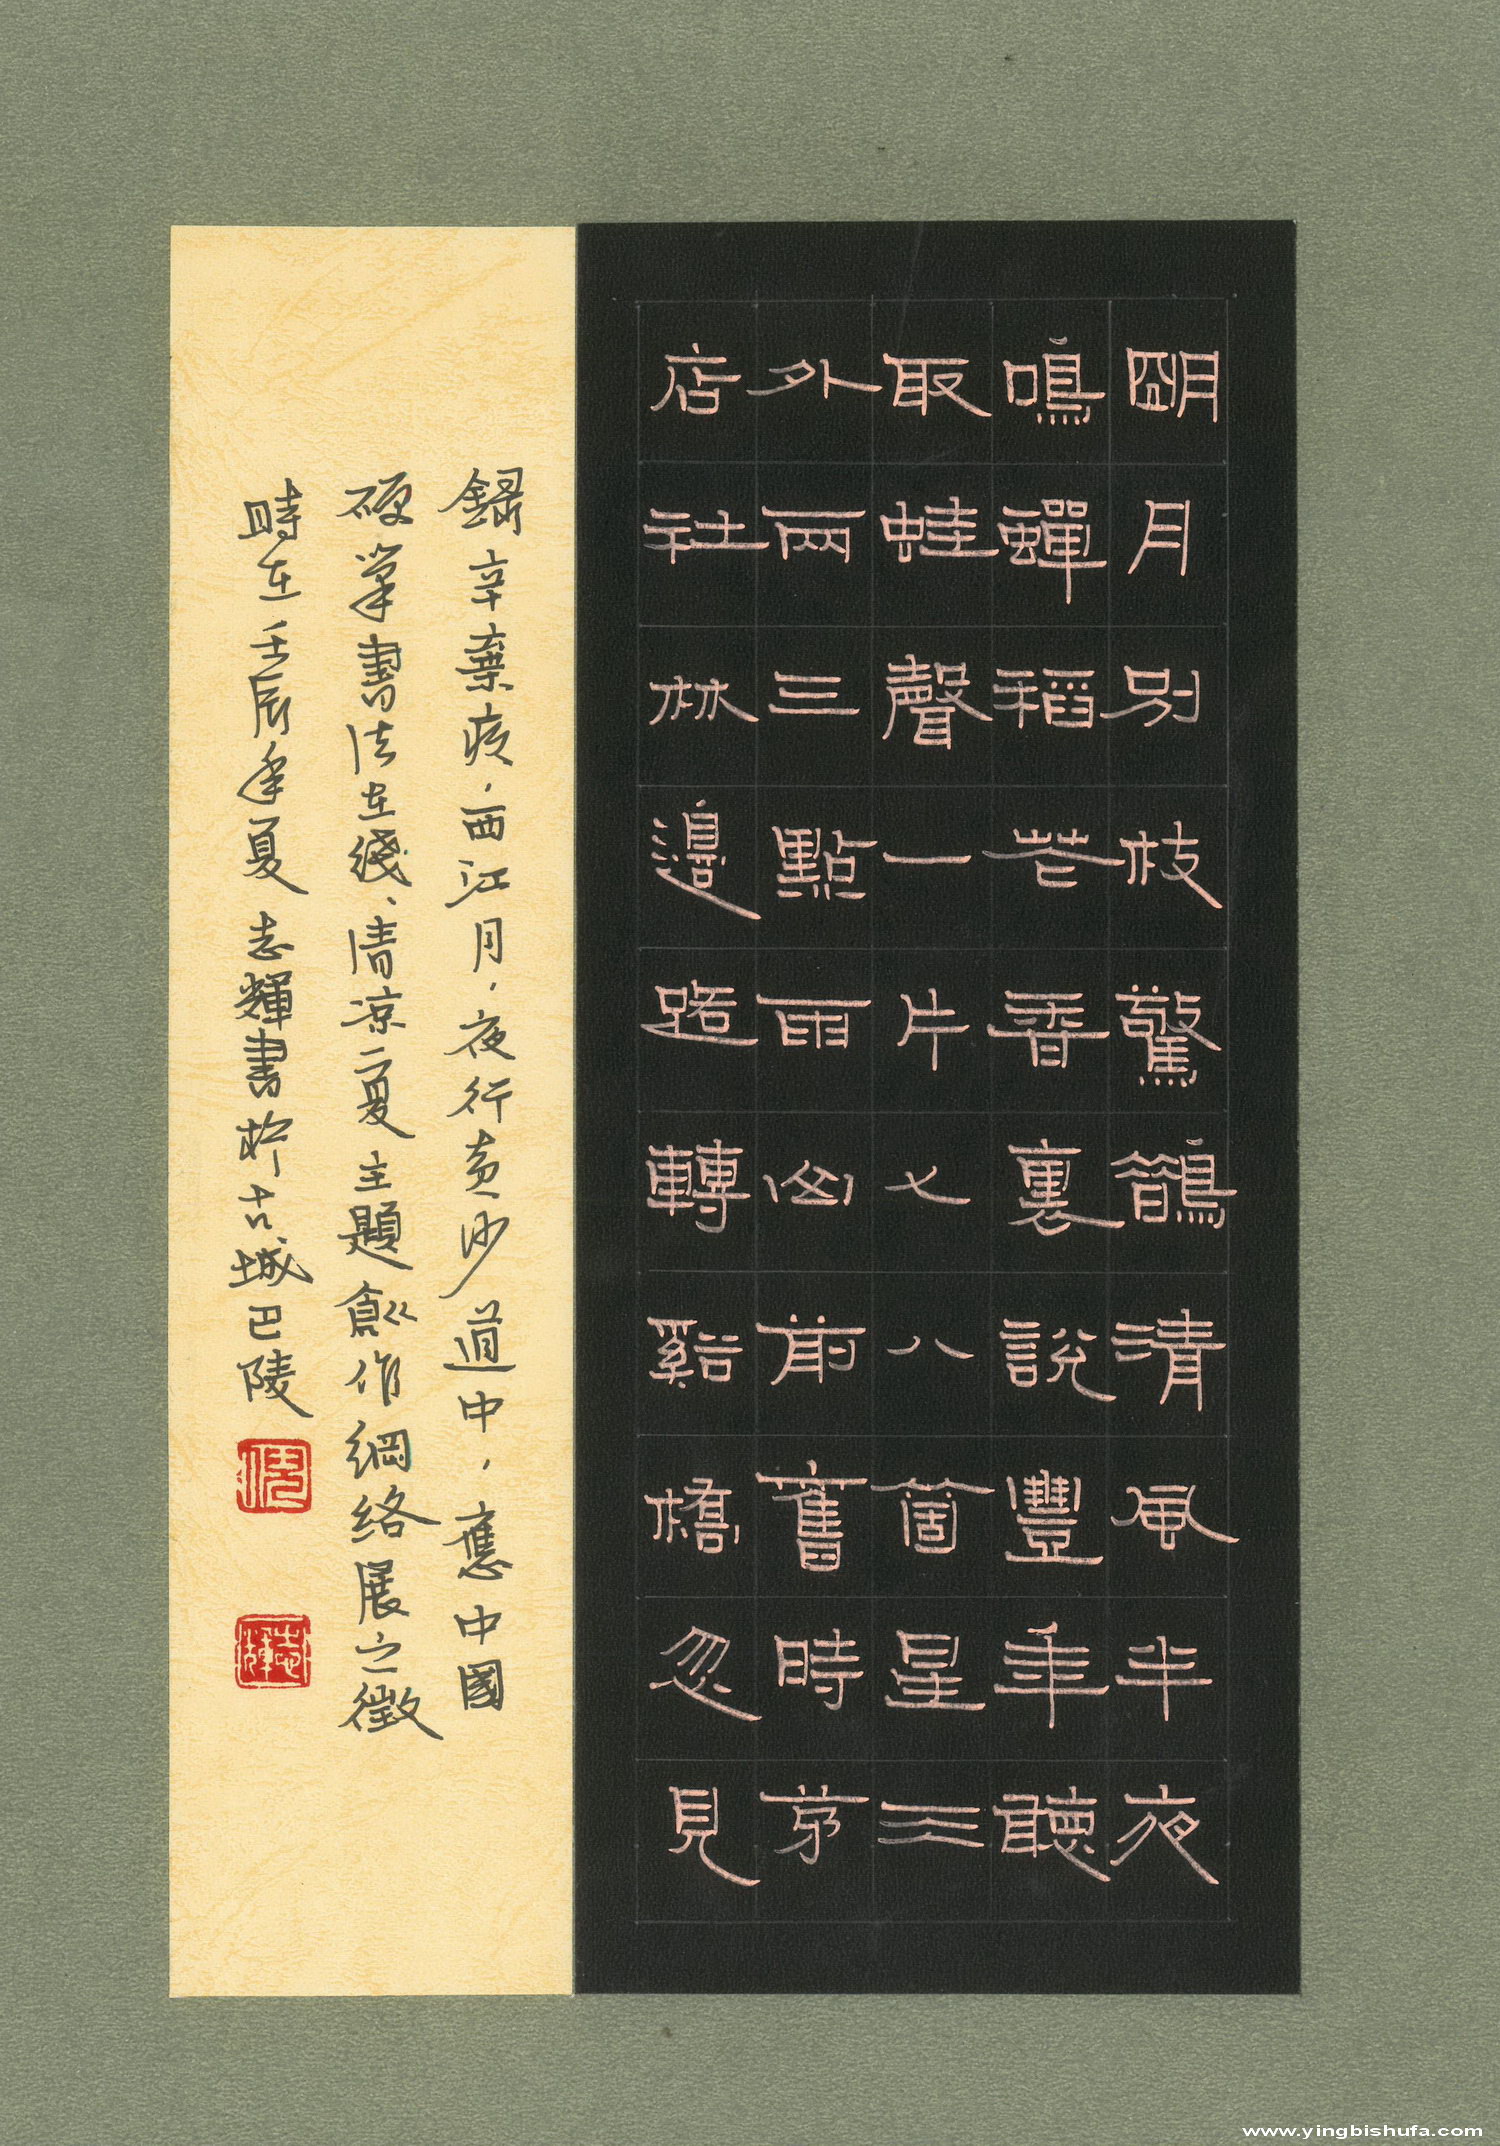 朙月別枝驚鵲清風半夜
鳴蟬稻花香裏說豐年聽
取蛙聲一片七八箇星天
外兩三點雨山前舊時茅
店社林邊路轉谿橋忽見
錄辛棄疾，西江月，夜行黃沙道中，應中國
硬筆書法在綫、清凉一夏主題創作網络展之徵
時在壬辰年夏志輝書於古城巴陵
志輝
www.yingbishufa.com